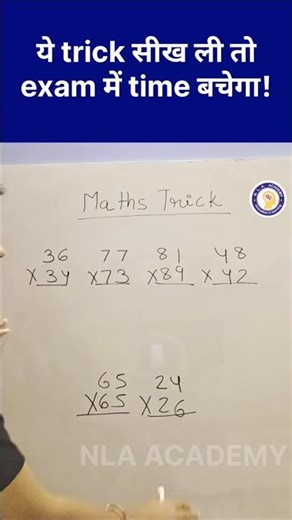 ये trick सीख ली तो
exam में time बचेगा!
Maths Trick
36 77 81 48
X34 X73 X89 X42
65 24
X65 X26
NLA ACADEMY